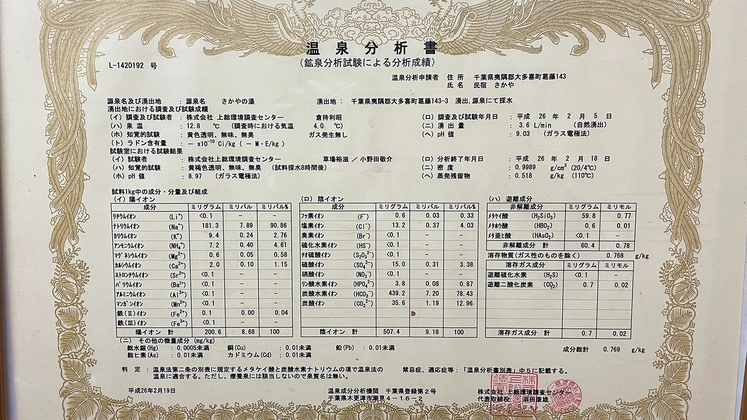 温泉分析書
(鉱泉分析試験による分析成績)
L-1420192 号
温泉分析申請者 住所 千葉県夷隅郡大多喜町葛藤143
氏名 民宿 さかや
源泉名及び湧出地 : 源泉名 さかやの湯 湧出地 : 千葉県夷隅郡大多喜町葛藤143-3 湧出、源泉にて採水
湧出地における調査及び試験成績
(イ) 調査及び試験者 : 株式会社 上総環境調査センター 倉持利昭 (ロ) 調査及び試験年月日 : 平成 26 年 2 月 5 日
(ハ) 泉温 : 12.8 ℃ (調査時における気温 4.0 ℃) (ニ) 湧出量 : 3.6 L/min (自然湧出)
(ホ) 知覚的試験 : 黄色透明、無味、無臭 ガス発生無し (ヘ) pH値 : 9.03 (ガラス電極法)
(ト) ラドン含有量 : - ×10⁻¹⁰ Ci/kg ( - M・E/kg )
試験室における試験結果
(イ) 試験者 : 株式会社上総環境調査センター 草場裕滋 / 小野田敬介 (ロ) 分析終了年月日 : 平成 26 年 2 月 18 日
(ハ) 知覚的試験 : 黄褐色透明、無味、無臭 (試料採水8時間後) (ニ) 密度 : 0.9989 g/cm³ (20/4℃)
(ホ) pH値 : 8.97 (ガラス電極法) (ヘ) 蒸発残留物 : 0.518 g/kg (110℃)
試料1kg中の成分・分量及び組成
(イ) 陽イオン
成分 ミリグラム ミリバル ミリバル%
リチウムイオン (Li⁺) <0.1 - -
ナトリウムイオン (Na⁺) 181.3 7.89 90.86
カリウムイオン (K⁺) 9.4 0.24 2.76
アンモニウムイオン (NH₄⁺) 7.2 0.40 4.61
マグネシウムイオン (Mg²⁺) 0.6 0.05 0.58
カルシウムイオン (Ca²⁺) 2.0 0.10 1.15
ストロンチウムイオン (Sr²⁺) <0.1 - -
バリウムイオン (Ba²⁺) <0.1 - -
アルミニウムイオン (Al³⁺) <0.1 - -
マンガンイオン (Mn²⁺) <0.1 - -
鉄(Ⅱ)イオン (Fe²⁺) 0.1 0.00 0.04
鉄(Ⅲ)イオン (Fe³⁺) <0.1 - -
陽イオン 計 200.6 8.68 100
(ロ) 陰イオン
成分 ミリグラム ミリバル ミリバル%
フッ素イオン (F⁻) 0.6 0.03 0.33
塩素イオン (Cl⁻) 13.2 0.37 4.03
臭素イオン (Br⁻) <0.1 - -
硫化水素イオン (HS⁻) <0.1 - -
チオ硫酸イオン (S₂O₃²⁻) <0.1 - -
硫酸イオン (SO₄²⁻) 15.0 0.31 3.38
硝酸イオン (NO₃⁻) <0.1 - -
リン酸水素イオン (HPO₄²⁻) 3.8 0.08 0.87
炭酸水素イオン (HCO₃⁻) 439.2 7.20 78.43
炭酸イオン (CO₃²⁻) 35.6 1.19 12.96
陰イオン 計 507.4 9.18 100
(ハ) 遊離成分
非解離成分 ミリグラム ミリモル
メタケイ酸 (H₂SiO₃) 59.8 0.77
メタホウ酸 (HBO₂) 0.6 0.01
メタ亜ヒ酸 (HAsO₂) <0.1 -
非解離成分 計 60.4 0.78
溶存物質(ガス性のものを除く) 0.768 g/kg
溶存ガス成分 ミリグラム ミリモル
遊離硫化水素 (H₂S) <0.1 -
遊離二酸化炭素 (CO₂) 0.7 0.02
溶存ガス成分 計 0.7 0.02
(ニ) その他の微量成分 (mg/kg)
総水銀(Hg) : 0.0005未満 銅(Cu) : 0.01未満 鉛(Pb) : 0.01未満 成分総計 0.769 g/kg
総ヒ素(As) : 0.01未満 カドミウム(Cd) : 0.01未満
判定 : 温泉法第二条の別表に規定するメタケイ酸と炭酸水素ナトリウムの項で温泉法の 禁忌症、適応症等:「温泉分析書別表」中5に記載する。
温泉に適合する。ただし、療養泉には該当しないので泉質名は無し。
平成26年2月19日 温泉成分分析機関 千葉県登録第2号 株式会社 上総環境調査センター
千葉県木更津市潮見4-16-2 代表取締役 浜田康雄